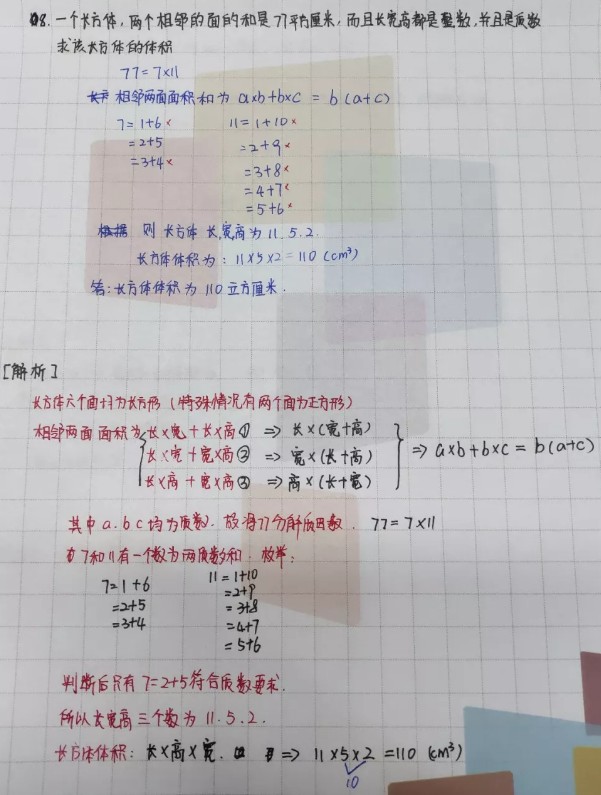 08. 一个长方体，两个相邻的面的和是77平方厘米，而且长宽高都是整数，并且是质数
求该长方体的体积
77=7×11
相邻两面面积和为 a×b+b×c = b(a+c)
7=1+6× 11=1+10×
=2+5 =2+9×
=3+4× =3+8×
=4+7×
=5+6×
则 长方体 长,宽,高为 11.5.2.
长方体体积为：11×5×2=110 (cm³)
答:长方体体积为110立方厘米.
[解析]
长方体六个面均为长方形 (特殊情况有两个面为正方形)
相邻两面面积为 长×宽+长×高① ⇒ 长×(宽+高)
长×宽+宽×高② ⇒ 宽×(长+高) ⇒ a×b+b×c = b(a+c)
长×高+宽×高③ ⇒ 高×(长+宽)
其中a.b.c均为质数. 故将77分解质因数. 77=7×11
7和11有一个数为两质数的和. 枚举:
7=1+6 11=1+10
=2+5 =2+9
=3+4 =3+8
=4+7
=5+6
判断后只有7=2+5符合质数要求.
所以长宽高三个数为 11.5.2.
长方体体积: 长×高×宽. ⇒ 11×5×2=110 (cm³)
10